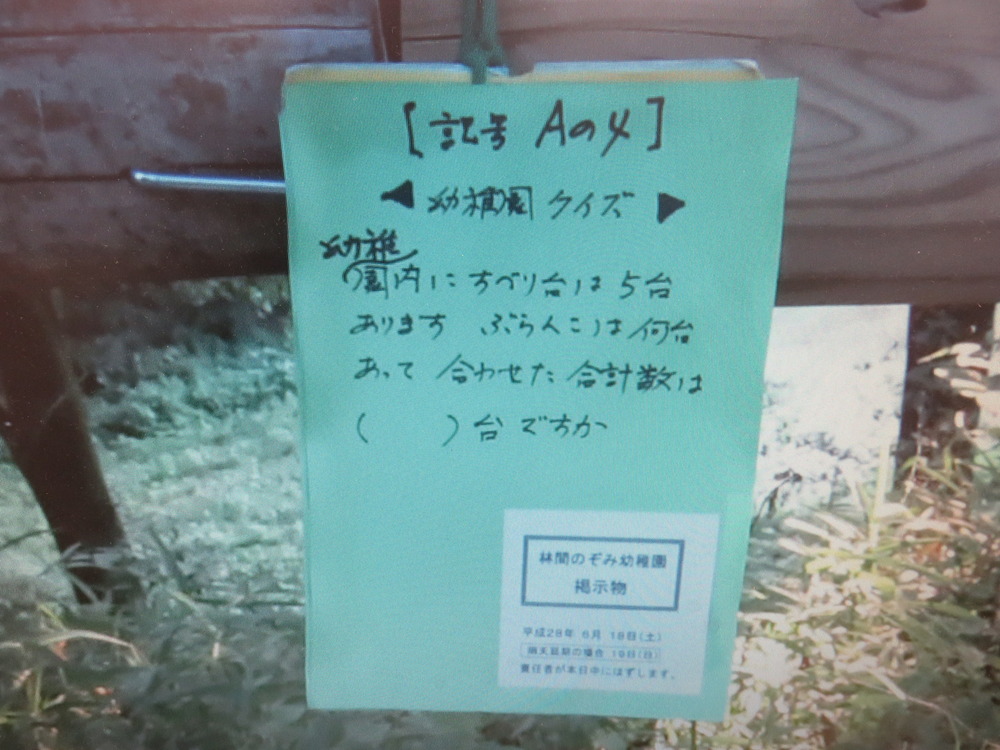 [記号 Aの4]
◀ 幼稚園 クイズ ▶
幼稚
園内に すべり台は 5台
あります ぶらんこは 何台
あって 合わせた 合計数は
(　　)台ですか
林間のぞみ幼稚園
掲示物
平成28年 6月 18日(土)
雨天延期の場合 19日(日)
責任者が本日中にはずします。